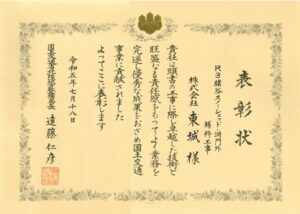 表彰状
R3猪谷スノーシェッド洞門外
補修工事
株式会社 東城 様
貴社は頭書の工事に際し卓越した技術と
旺盛な責任感をもってよく業務を
完遂し優秀な成果をおさめ国土交通
事業に貢献されました
よってここに表彰します
令和五年七月十八日
国土交通省北陸地方整備局長 遠藤 仁彦